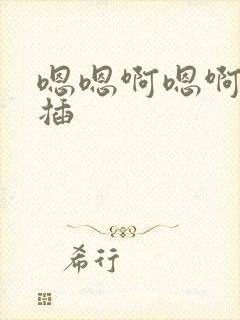 嗯嗯啊嗯啊
插
希行